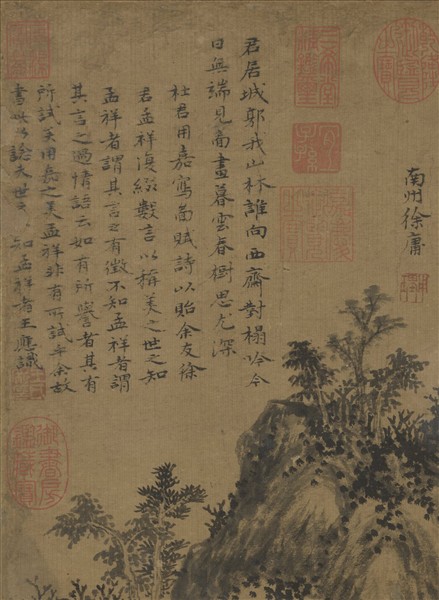 南州徐庸
君居城郭我山林誰向西齋對榻吟今
日無端見商畫暮雲春樹思尤深
杜君用嘉寫圖賦詩以貽余友徐
君孟祥復綴數言以稱美之世之知
孟祥者謂其言之有徵不知孟祥者謂
其言之過情語云如有所譽者其有
所試矣用嘉之美孟祥非有所試乎余故
書此以諗夫世之知孟祥者王應識